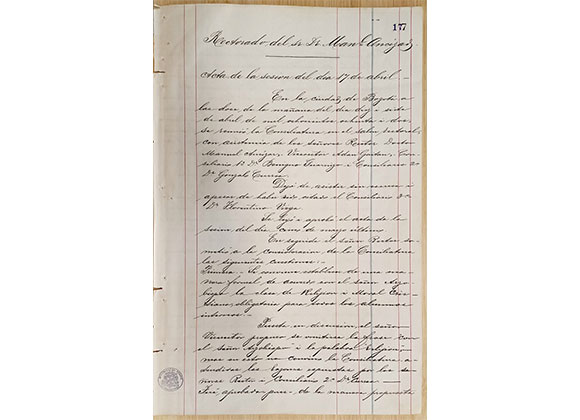 177
Rectorado del Sr Dr Manl Ancízar.
Acta de la sesion del dia 17 de abril.—
En la ciudad de Bogotá a
las doce de la mañana del dia diez i siete
de abril de mil ochocientos ochenta i dos,
se reunió la Consiliatura en el salon rectoral,
con asistencia de los señores Rector Doctor
Manuel Ancízar, Vicerrector Adan Gaitan, Con
siliario 1º Dr Benigno i Consiliario 2º
Dr Gonzalo
Dejó de asistir sin escusa i
apesar de haber sido citado el Consiliario 3º
Dr Florentino Vezga
Se leyó i aprobó el acta de la
sesion del dia once de marzo último
En seguida el señor Rector so
metió a la consideracion de la Consiliatura
las siguientes cuestiones:—
Primera.— Se conviene establecer de una ma
nera formal de acuerdo con el señor Arzo
bispo la clase de Relijion i Moral Cris
tiana, obligatoria para todos los alumnos
internos.—
Puesta en discusion, el señor
Vicerrector propuso se omitiera la frase "con
el señor Arzobispo" i la palabra
mas en esto no convino la Consiliatura a
las razones espuestas por los se
ñores Rector i Consiliario 2º Dr
Fué aprobada pues de la manera propuesta